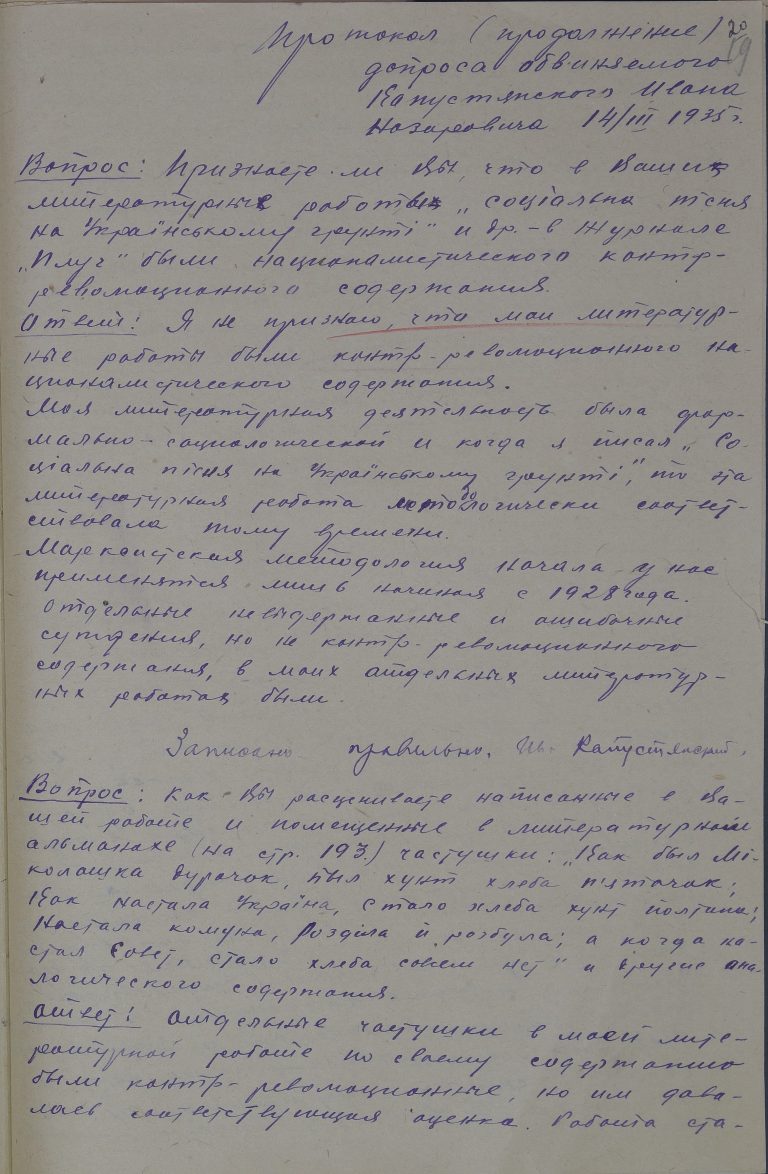 20
19
Протокол (продолжение)
допроса обвиняемого
Капустянского Ивана
Назаровича 14/III 1935 г.
Вопрос: Признаете ли Вы, что в Ваших
литературных работах „Соціальна пісня
на Українському ґрунті" и др. – в журнале
„Плуг" были националистического контр-
революционного содержания.
Ответ: Я не признаю, что мои литератур-
ные работы были контр-революционного на-
ционалистического содержания.
Моя литературная деятельность была фор-
мально-социологической и когда я писал „Со-
ціальна пісня на Українському ґрунті", то эта
литературная работа методологически соответ-
ствовала тому времени.
Марксистская методология начала у нас
применятся лишь начиная с 1928 года.
Отдельные невыдержанные и ошибочные
суждения, но не контр-революционного
содержания, в моих отдельных литератур-
ных работах были.
Записано правильно. Ив. Капустянский.
Вопрос: Как Вы расцениваете написанные в Ва-
шей работе и помещенные в литературном
альманахе (на стр. 193.) частушки: „Как был Мі-
колашка дурачок, был хунт хлеба п'ятачок;
Как настала Україна, стало хлеба хунт полтина;
Настала комуна, Розділа й розбула; а когда на-
стал Совет, стало хлеба совсем нет" и другие ана-
логического содержания.
Ответ: Отдельные частушки в моей лите-
ратурной работе по своему содержанию
были контр-революционные, но им дава-
лась соответствующая оценка. Работа ста-